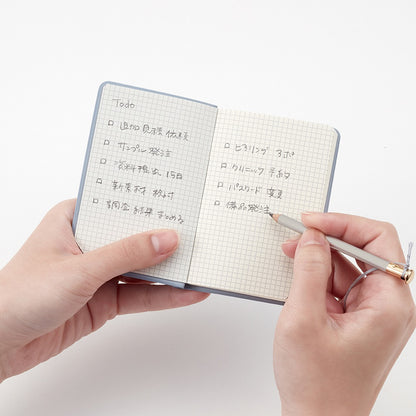 Todo
□ 追加見積依頼
□ サンプル発注
□ 資料提出 15日
□ 新素材 検討
□ 調査結果まとめる
□ ヒアリング
□ クリーニング
□ パスワード 変更
□ 備品発注